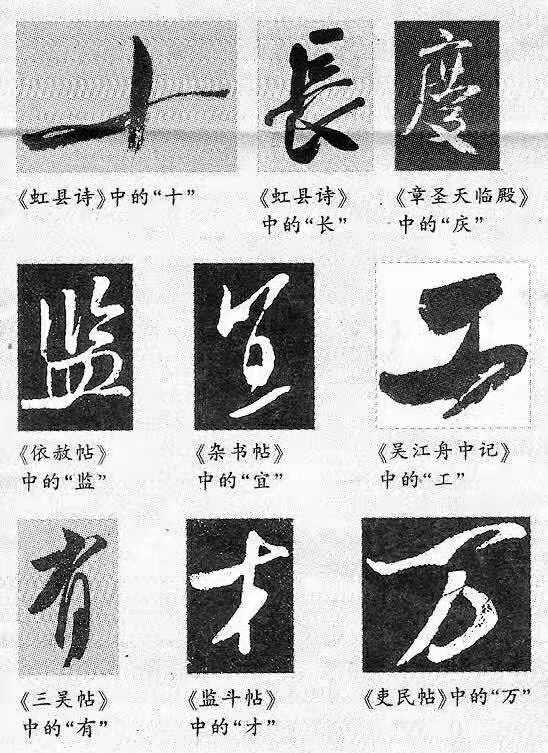 十
長
慶
《虹县诗》中的“十”
《虹县诗》
中的“长”
《章圣天临殿》
中的“庆”
监
宜
工
《依赦帖》
中的“监”
《杂书帖》
中的“宜”
《吴江舟中记》
中的“工”
有
才
万
《三吴帖》
中的“有”
《监斗帖》
中的“才”
《吏民帖》中的“万”